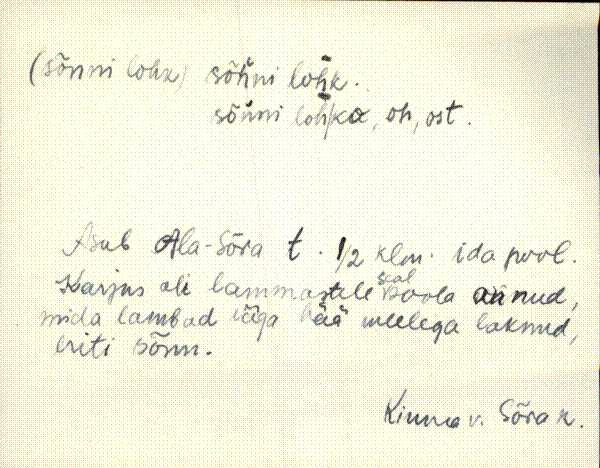 (sõnni lohk) sõńni lohk.
sõńni lohko, oh, ost.
Asub Ala-Sõra t. 1/2 klm. ida pool.
Karjus oli lammastele seal soola annud,
mida lambad väga hää meelega laknud,
eriti sõnn.
Kinna v. Sõra k.